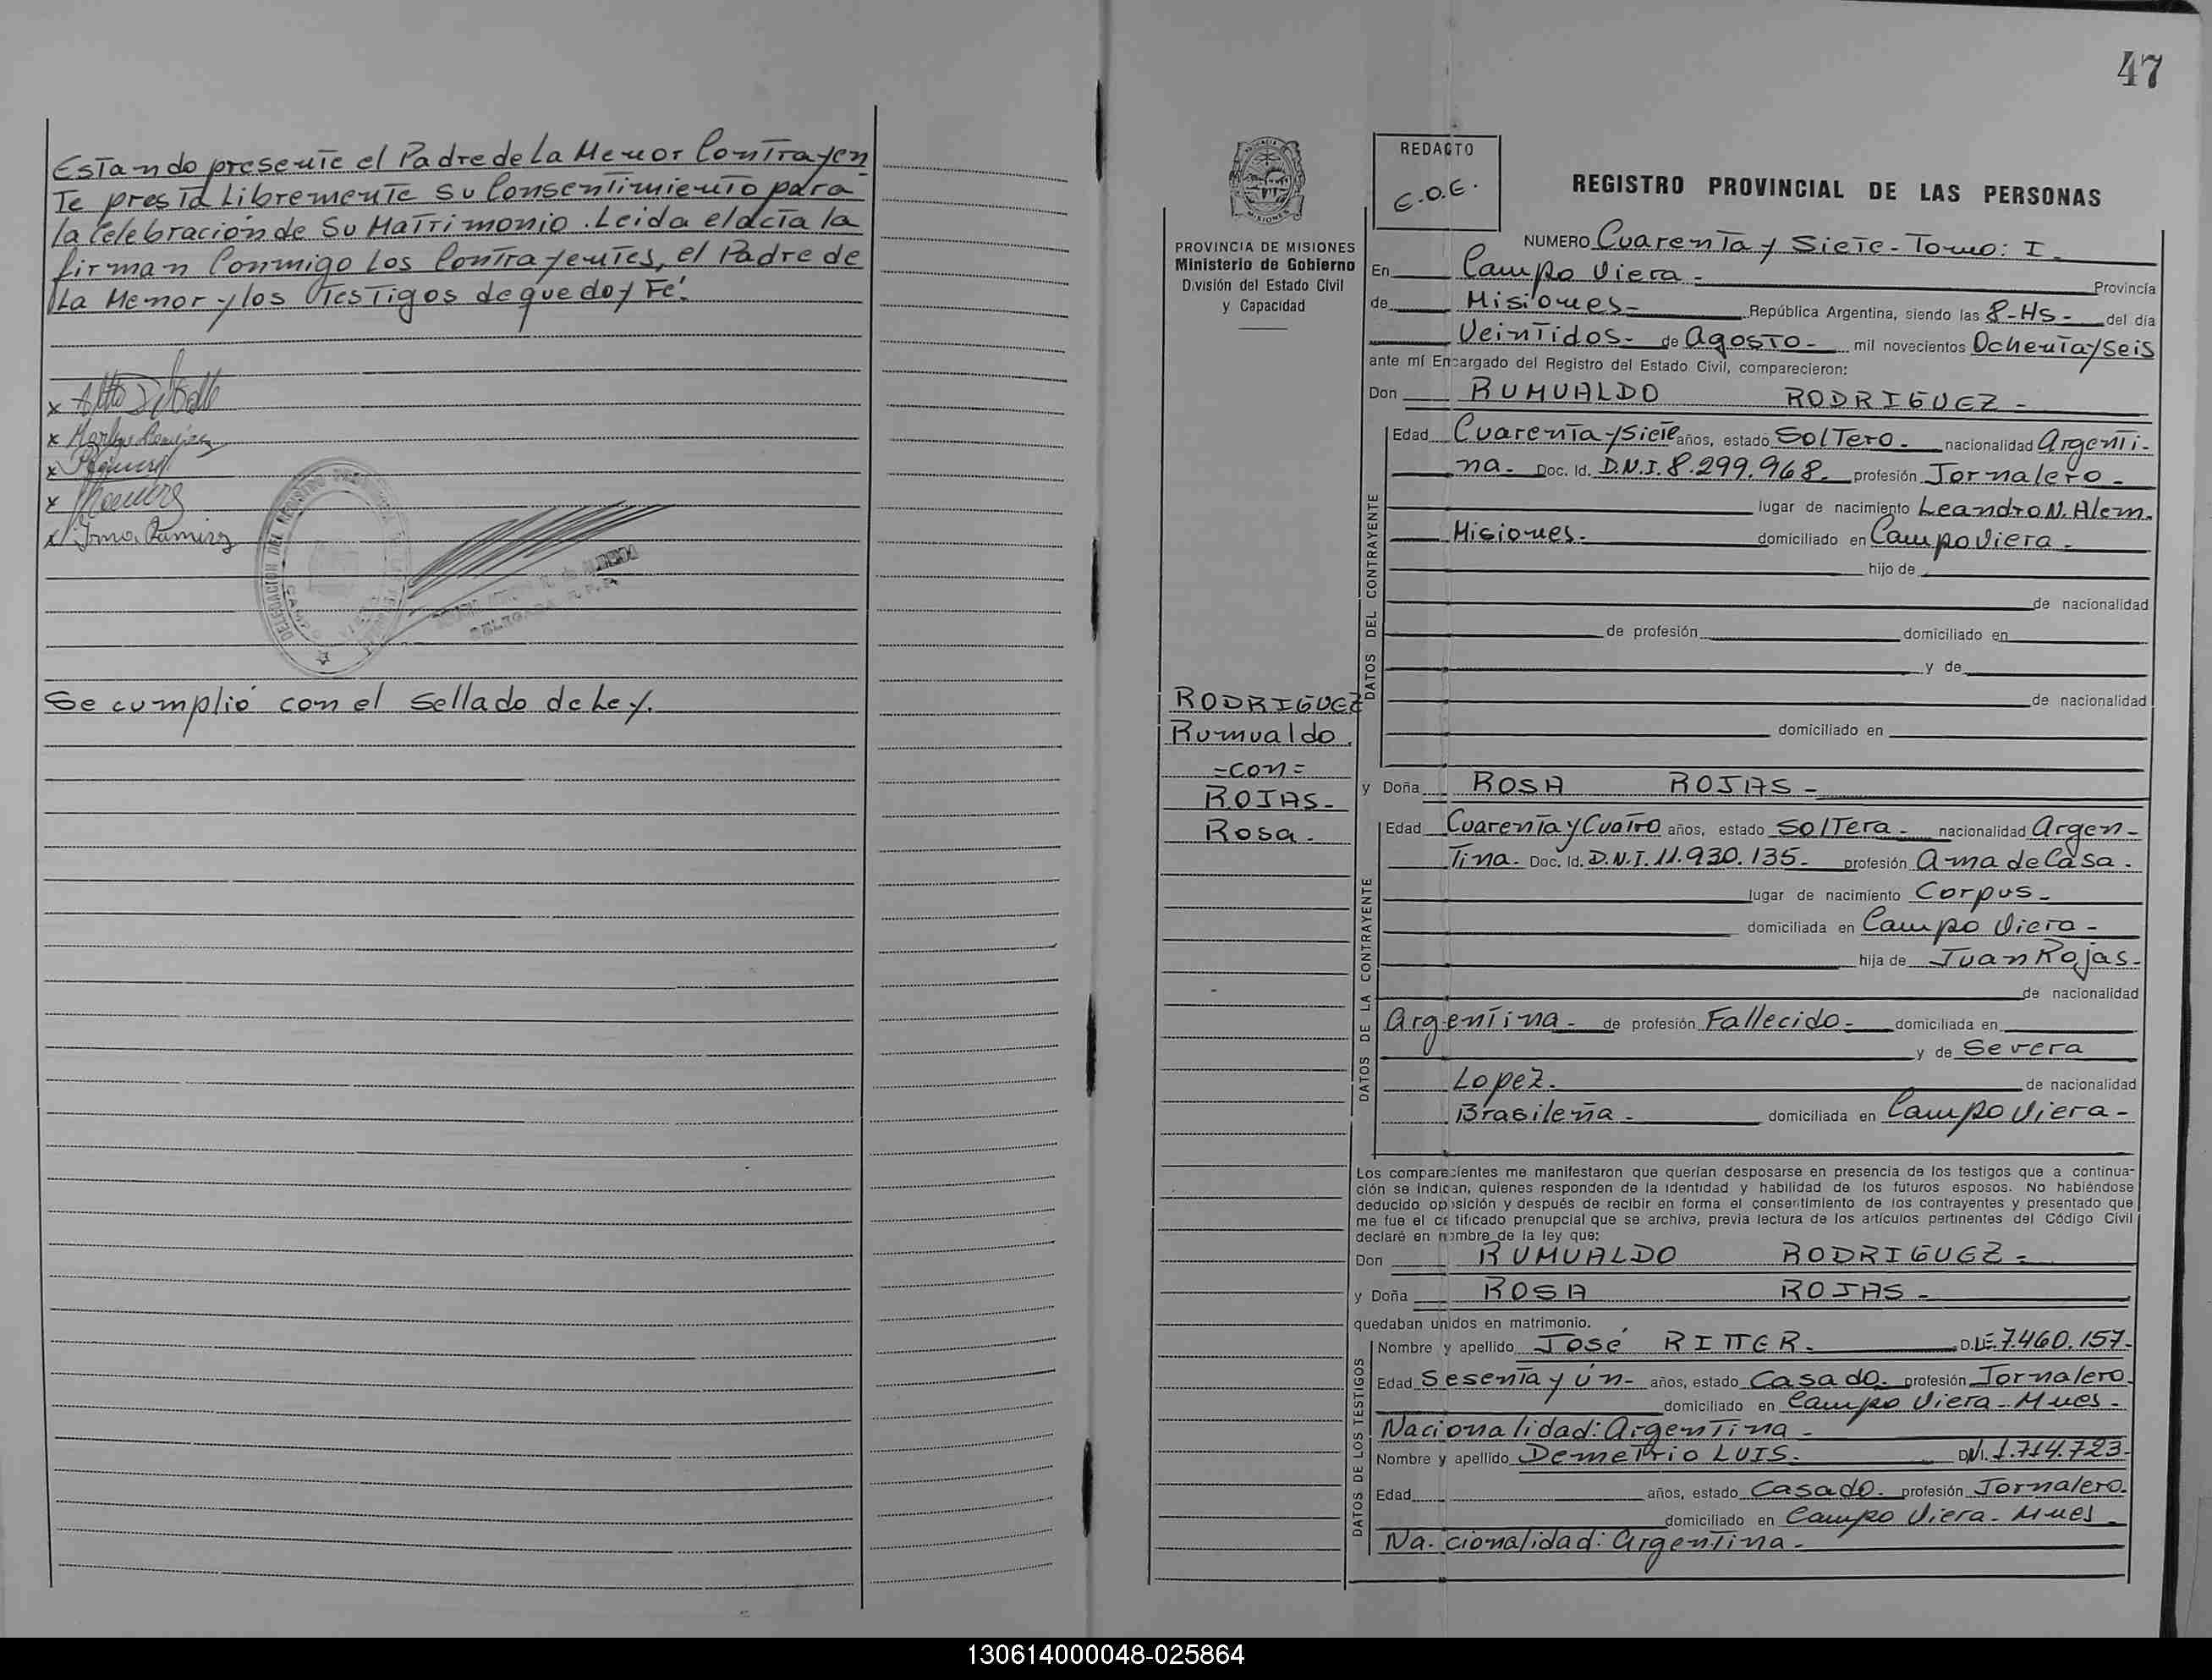 Estando presente el Padre de La Menor Contrayen
Te presta Libremente su Consentimiento para
la Celebración de Su Matrimonio. Leida el acta la
firman Conmigo Los Contrayentes, el Padre de
La Menor y los Testigos de que doy Fé.
x
x
x
x
x Irma Ramirez
Se cumplió con el Sellado de Ley.
47
REDACTO
C.O.E.
REGISTRO PROVINCIAL DE LAS PERSONAS
PROVINCIA DE MISIONES
Ministerio de Gobierno
División del Estado Civil
y Capacidad
NUMERO Cuarenta y Siete - Tomo: I -
En Campo Viera - Provincia
de Misiones - República Argentina, siendo las 8-Hs - del día
Veintidos - de Agosto - mil novecientos Ochenta y Seis
ante mí Encargado del Registro del Estado Civil, comparecieron:
Don RUMUALDO RODRIGUEZ -
Edad Cuarenta y Siete años, estado SolTero - nacionalidad Argenti-
na - Doc. Id. D.N.I. 8.299.968 - profesión Jornalero -
lugar de nacimiento Leandro N. Alem.
Misiones - domiciliado en Campo Viera -
hijo de
de nacionalidad
de profesión domiciliado en
y de
de nacionalidad
domiciliado en
DATOS DEL CONTRAYENTE
RODRIGUEZ
Rumualdo.
=con=
ROJAS -
Rosa -
y Doña ROSA ROJAS -
Edad Cuarenta y Cuatro años, estado SolTera - nacionalidad Argen-
Tina - Doc. Id. D.N.I. 11.930.135 - profesión Ama de Casa -
lugar de nacimiento Corpus -
domiciliada en Campo Viera -
hija de Juan Rojas -
de nacionalidad
Argentina - de profesión Fallecido - domiciliada en
y de Severa
Lopez - de nacionalidad
Brasileña - domiciliada en Campo Viera -
DATOS DE LA CONTRAYENTE
Los comparecientes me manifestaron que querían desposarse en presencia de los testigos que a continua-
ción se indican, quienes responden de la identidad y habilidad de los futuros esposos. No habiéndose
deducido oposición y después de recibir en forma el consentimiento de los contrayentes y presentado que
me fue el certificado prenupcial que se archiva, previa lectura de los artículos pertinentes del Código Civil
declaré en nombre de la ley que:
Don RUMUALDO RODRIGUEZ -
y Doña ROSA ROJAS -
quedaban unidos en matrimonio.
Nombre y apellido José RITTER - D.LE. 7.460.157 -
Edad Sesenta y ún - años, estado Casado - profesión Jornalero
domiciliado en Campo Viera - Mnes -
Nacionalidad: Argentina -
Nombre y apellido Demetrio LUIS - DNI. 1.714.723 -
Edad años, estado Casado - profesión Jornalero.
domiciliado en Campo Viera - Mnes -
Na. cionalidad: Argentina -
DATOS DE LOS TESTIGOS
130614000048-025864